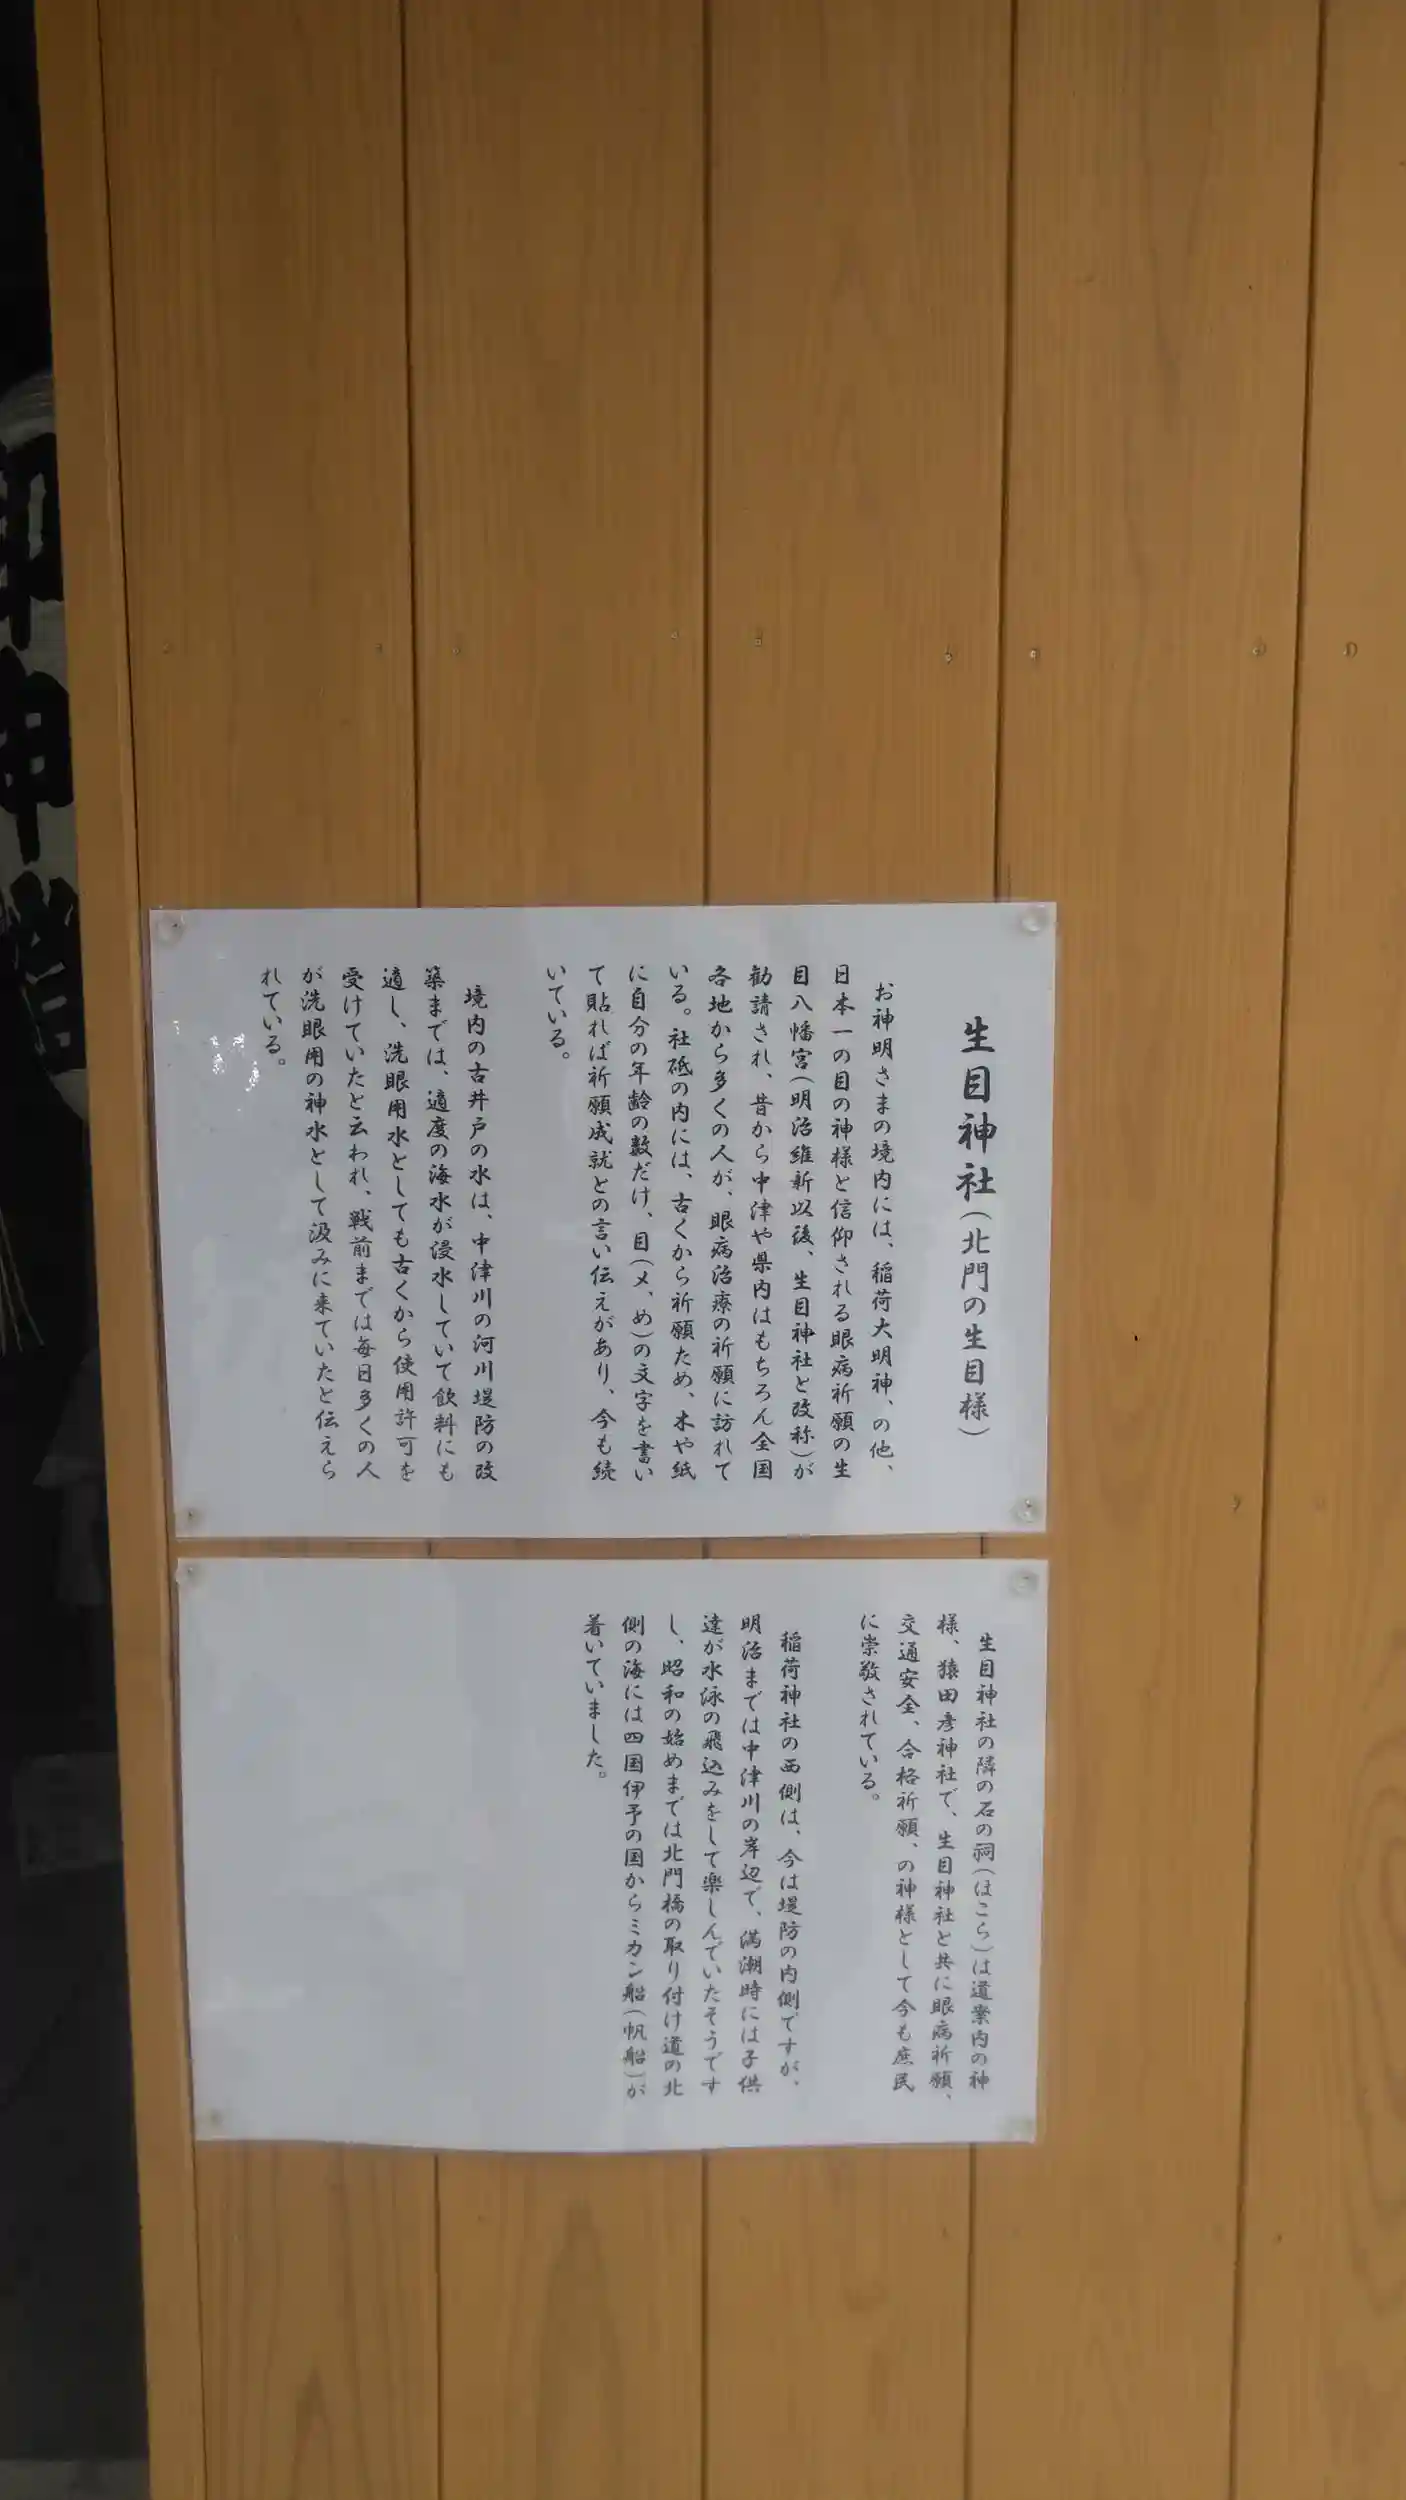 生目神社(北門の生目様)
お神明さまの境内には、稲荷大明神、の他、
日本一の目の神様と信仰される眼病祈願の生
目八幡宮(明治維新以後、生目神社と改称)が
勧請され、昔から中津や県内はもちろん全国
各地から多くの人が、眼病治療の祈願に訪れて
いる。社砥の内には、古くから祈願ため、木や紙
に自分の年齢の数だけ、目(メ、め)の文字を書い
て貼れば祈願成就との言い伝えがあり、今も続
いている。
境内の古井戸の水は、中津川の河川堤防の改
築までは、適度の海水が浸水していて飲料にも
適し、洗眼用水としても古くから使用許可を
受けていたと云われ、戦前までは毎日多くの人
が洗眼用の神水として汲みに来ていたと伝えら
れている。
生目神社の隣の石の祠(ほこら)は道案内の神
様、猿田彦神社で、生目神社と共に眼病祈願、
交通安全、合格祈願、の神様として今も庶民
に崇敬されている。
稲荷神社の西側は、今は堤防の内側ですが、
明治までは中津川の岸辺で、満潮時には子供
達が水泳の飛込みをして楽しんでいたそうです
し、昭和の始めまでは北門橋の取り付け道の北
側の海には四国伊予の国からミカン船(帆船)が
着いていました。